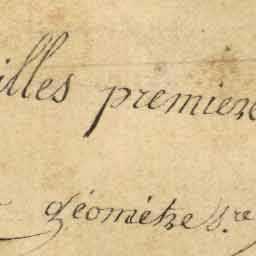 illes premiere
géomètre s.re